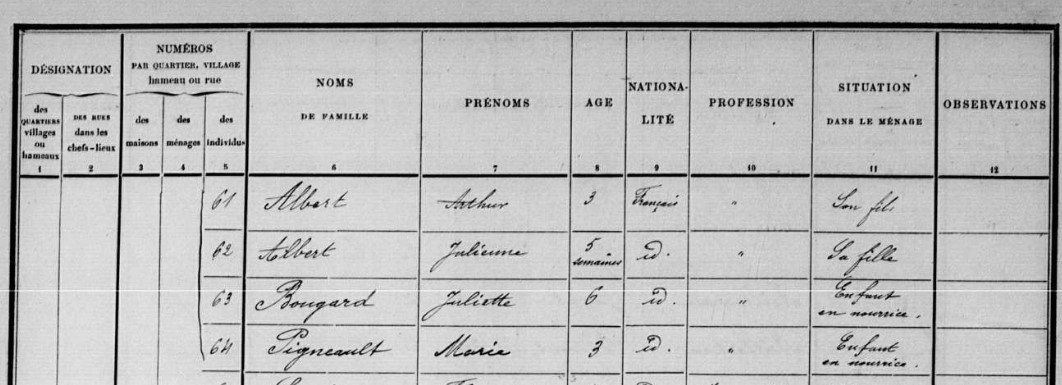 DÉSIGNATION
NUMÉROS
PAR QUARTIER, VILLAGE
hameau ou rue
NOMS
DE FAMILLE
PRÉNOMS
AGE
NATIONA-
LITÉ
PROFESSION
SITUATION
DANS LE MÉNAGE
OBSERVATIONS
des
QUARTIERS
villages
ou
hameaux
DES RUES
dans les
chefs-lieux
des
maisons
des
ménages
des
individus
1 2 3 4 5 6 7 8 9 10 11 12
61 Albert Arthur 3 Français " Son fils
62 Albert Julienne 5 semaines id. " Sa fille
63 Bougard Juliette 6 id. " Enfant
en nourrice.
64 Pigneault Marie 3 id. " Enfant
en nourrice.